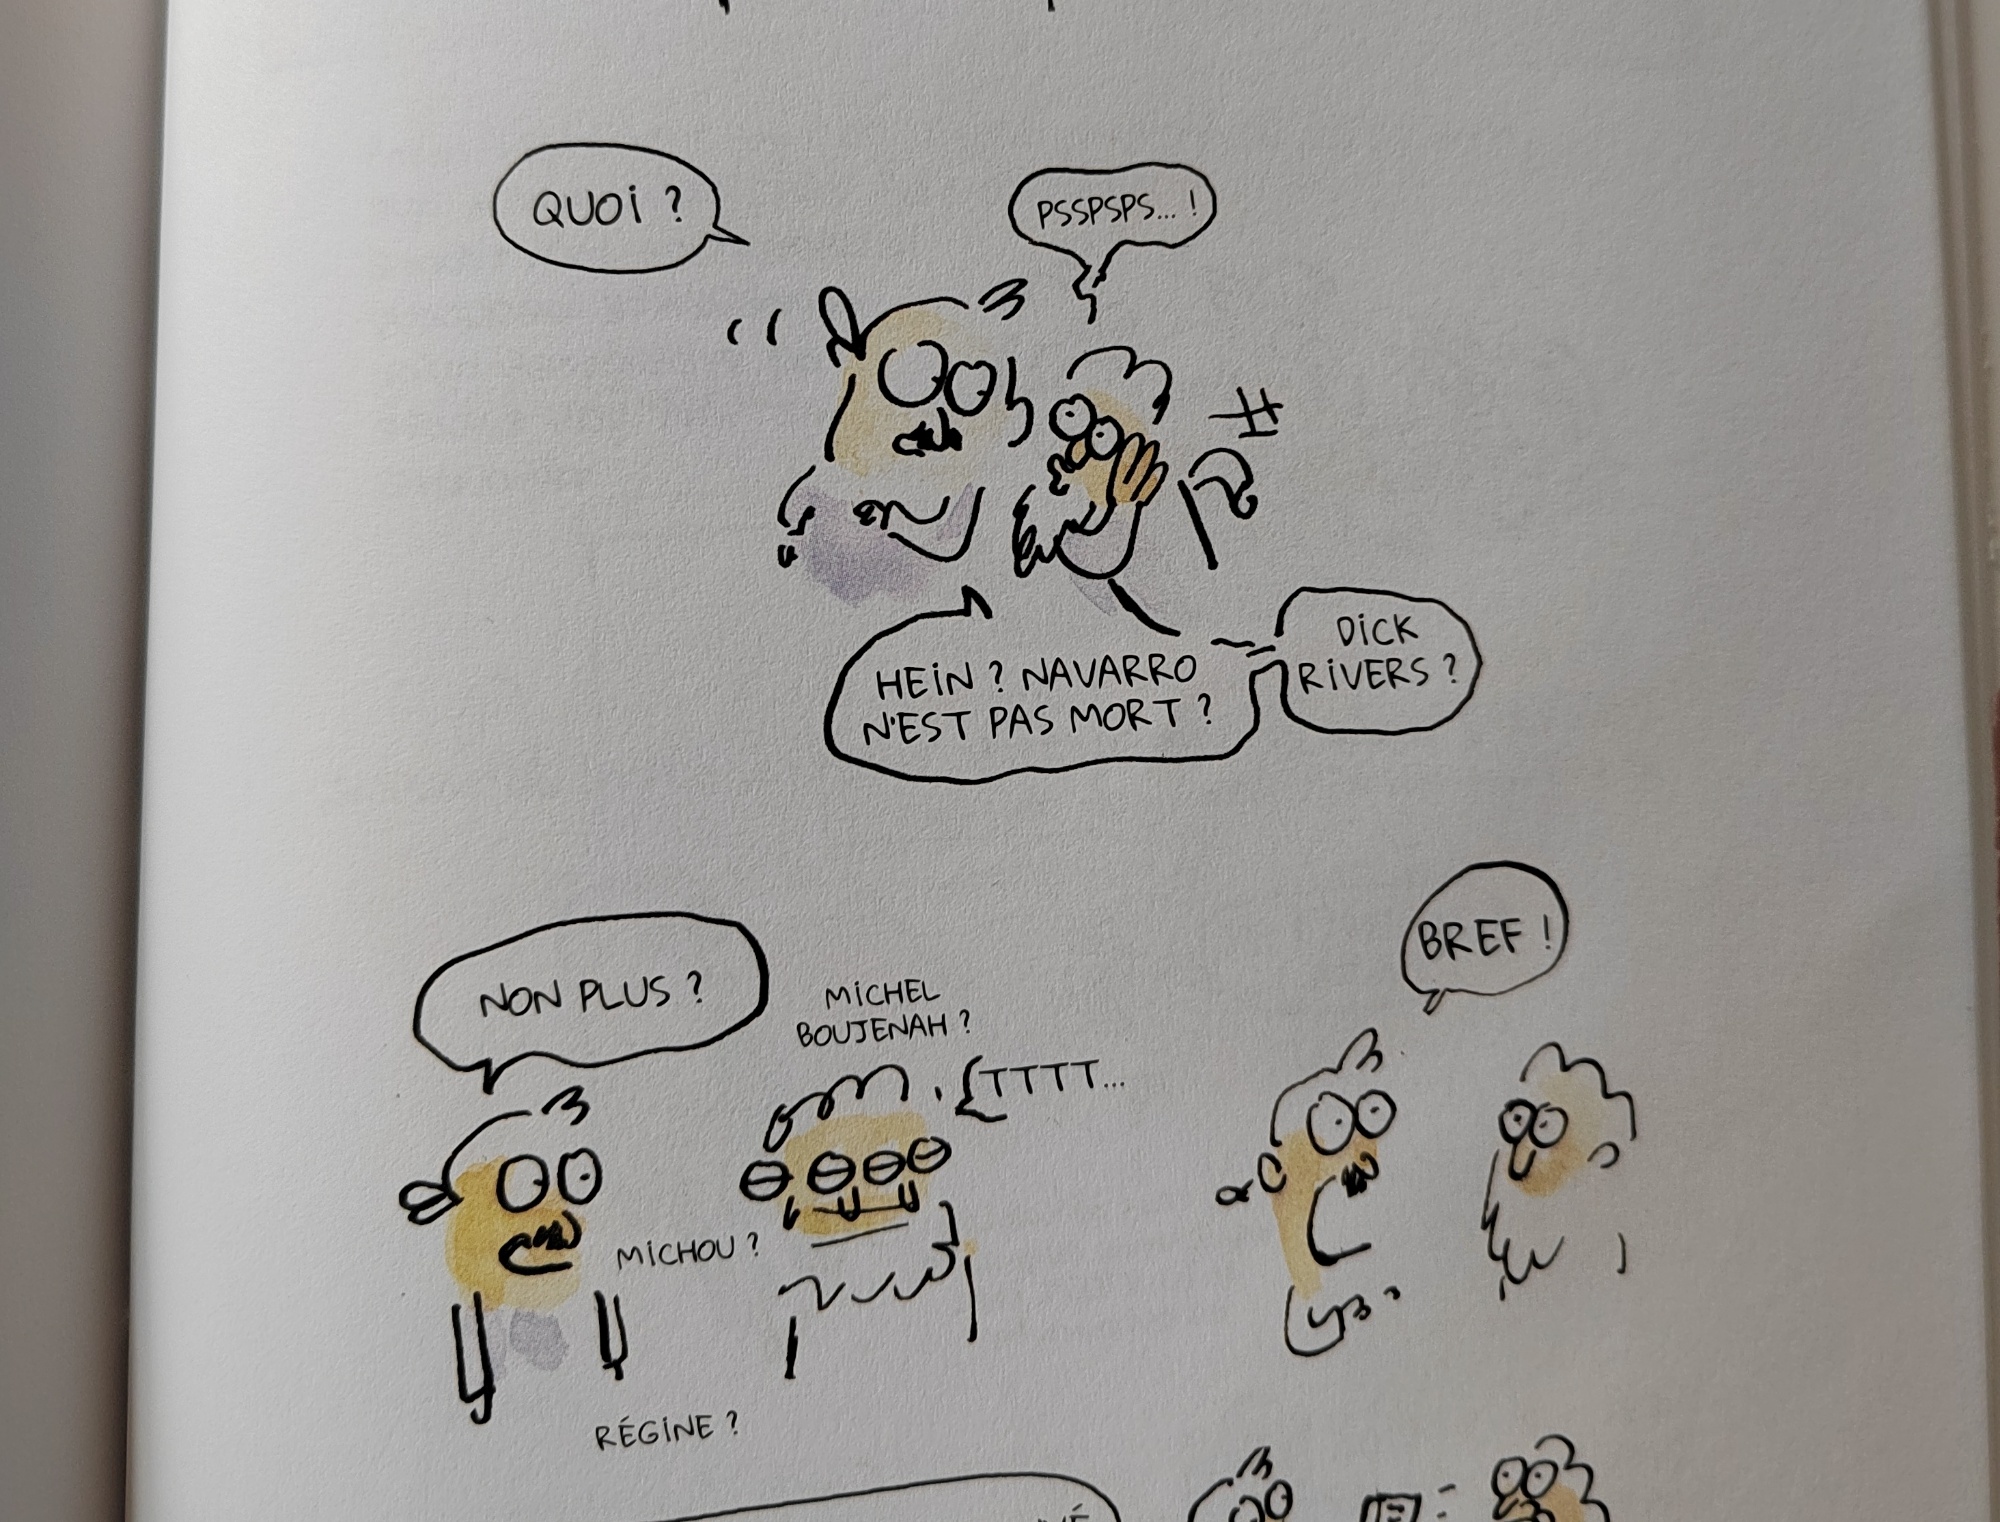 QUOI ?
PSSPSPS... !
HEIN ? NAVARRO
N'EST PAS MORT ?
DICK
RIVERS ?
NON PLUS ?
MICHEL
BOUJENAH ?
TTTT...
MICHOU ?
RÉGINE ?
BREF !